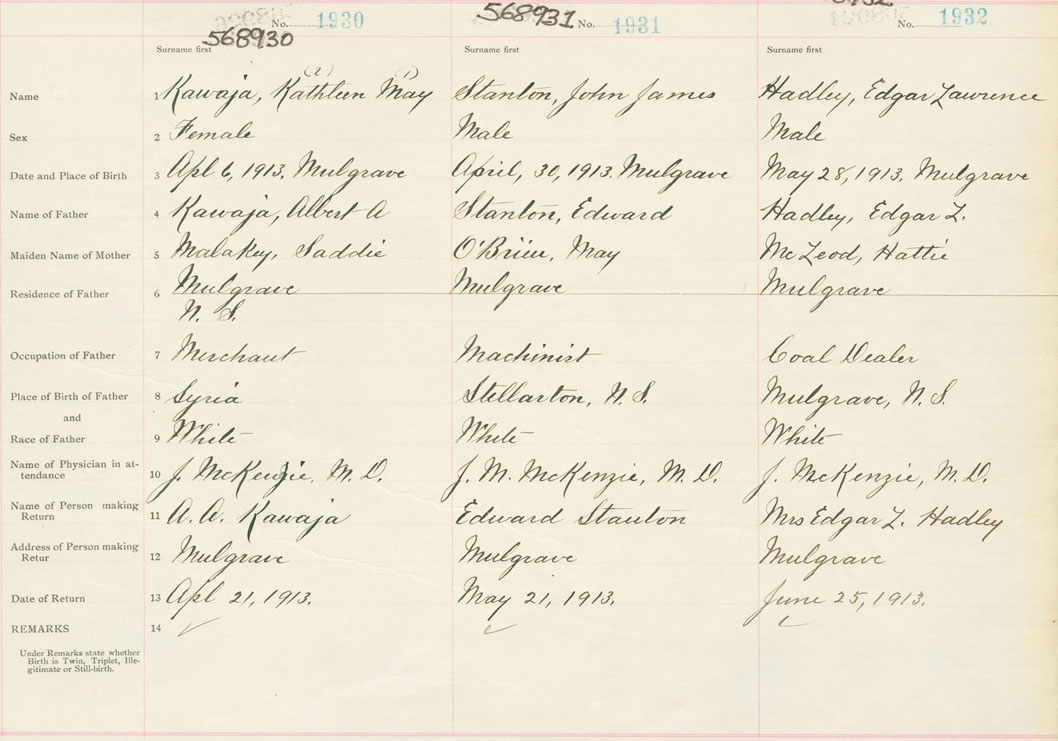 No. 1930
568930
568931 No. 1931
No. 1932
Surname first Surname first Surname first
(2) (1)
Name 1 Kawaja, Kathleen May Stanton, John James Hadley, Edgar Lawrence
Sex 2 Female Male Male
Date and Place of Birth 3 Apl 6, 1913. Mulgrave April, 30, 1913. Mulgrave May 28, 1913. Mulgrave
Name of Father 4 Kawaja, Albert A Stanton, Edward Hadley, Edgar L.
Maiden Name of Mother 5 Malakey, Saddie O'Brien, May McLeod, Hattie
Residence of Father 6 Mulgrave Mulgrave Mulgrave
N. S.
Occupation of Father 7 Merchant Machinist Coal Dealer
Place of Birth of Father 8 Syria Stellarton, N. S. Mulgrave, N. S.
and
Race of Father 9 White White White
Name of Physician in at-
tendance 10 J. McKenzie, M. D. J. M. McKenzie, M. D. J. McKenzie, M. D.
Name of Person making
Return 11 A. A. Kawaja Edward Stanton Mrs Edgar L. Hadley
Address of Person making
Retur 12 Mulgrave Mulgrave Mulgrave
Date of Return 13 Apl 21, 1913. May 21, 1913. June 25, 1913.
REMARKS 14
Under Remarks state whether
Birth is Twin, Triplet, Ille-
gitimate or Still-birth.